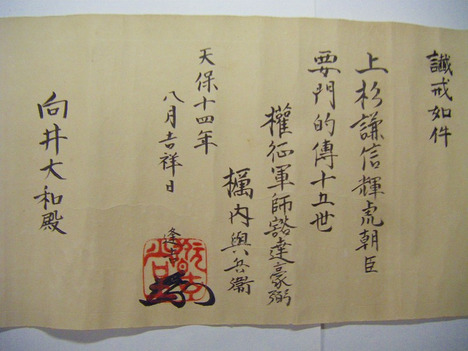 讖戒如件
上杉謙信輝虎朝臣
要門的傳十五世
權征軍師豁達豪弼
櫔内與兵衞
天保十四年
八月吉祥日
逢吉
向井大和殿